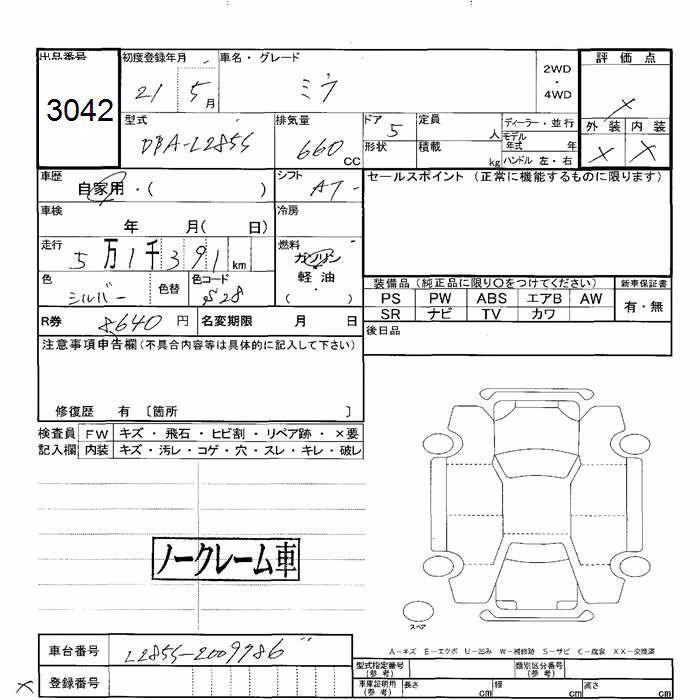 出品番号 初度登録年月 車名・グレード 評価点
3042 21 5月 ミラ 2WD ・ 4WD ×
外装 内装
× ×
型式 排気量 ドア 定員 ディーラー・並行
DBA-L285S 660 CC 5 人 モデル年式 年
形状 積載 kg ハンドル 左・右
車歴 シフト セールスポイント (正常に機能するものに限ります)
自家用・( ) AT
車検 冷房
年 月( 日)
走行 燃料
5万1千391km ガソリン
・
軽油
( )
色 色替 色コード
シルバー S28
装備品 (純正品に限り〇をつけてください) 新車保証書
PS PW ABS エアB AW 有・無
SR ナビ TV カワ
R券 8640円 名変期限 月 日
後日品
注意事項申告欄(不具合内容等は具体的に記入して下さい)
修復歴 有 〔箇所 〕
検査員 FW キズ・飛石・ヒビ割・リペア跡・×要
記入欄 内装 キズ・汚レ・コゲ・穴・スレ・キレ・破レ
ノークレーム車
スペア
A-キズ E-エクボ U-凹み W-補修跡 S-サビ C-腐食 XX-交換済
車台番号 L285S-2009786
型式指定番号(参考) 類別区分番号(参考)
登録番号
車庫証明用(参考) 長さ cm 幅 cm 高さ cm
×